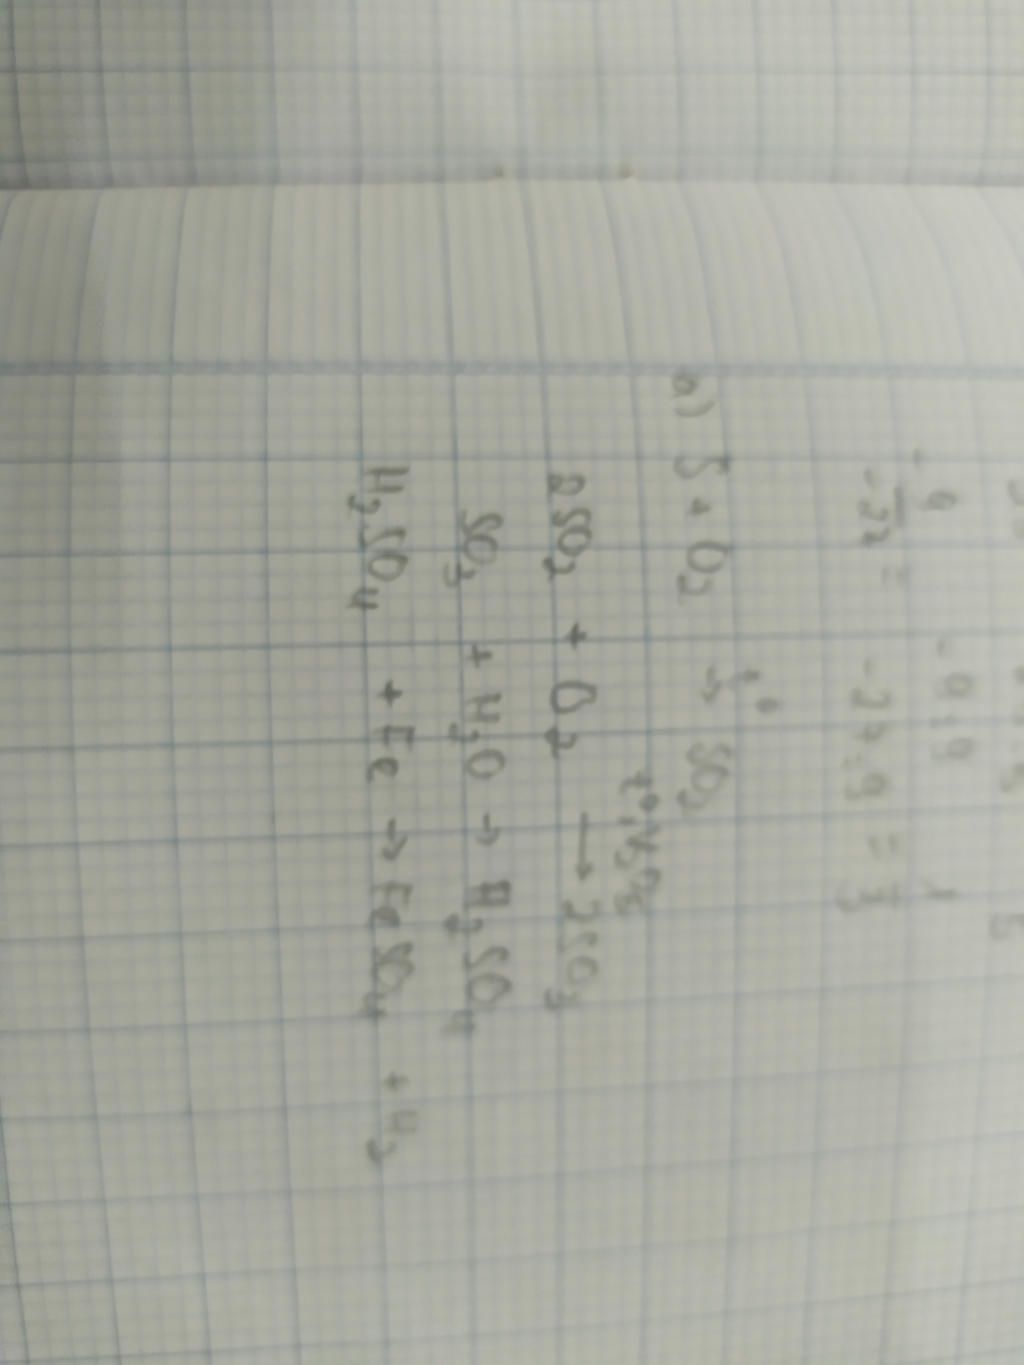 -9
-27 = -27:9 = 3
a) S + O₂ →t° SO₂
2SO₂ + O₂ ⟶ t°, V₂O₅ 2SO₃
SO₃ + H₂O → H₂SO₄
H₂SO₄ + Fe → FeSO₄ + H₂